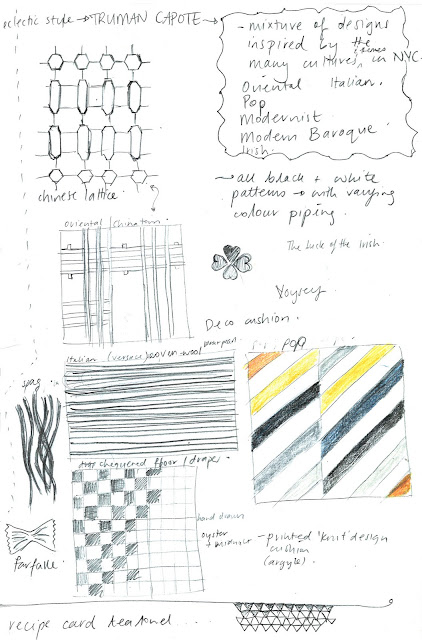 eclectic style → TRUMAN CAPOTE →
- mixture of designs
inspired by the
many cultures, in NYC.
Oriental Italian.
Pop
Modernist
Modern Baroque
Irish.
→ all black + white
patterns → with varying
colour piping.
chinese lattice.
oriental / Chinatown
The luck of the Irish
Voysey
Deco cushion.
Italian (versace) woven-wool
pop
spag
chequered floor / draper.
hand drawn
oyster
+ midnight
- printed 'knit' design
cushion
(argyle).
farfalle
recipe card teatowel...